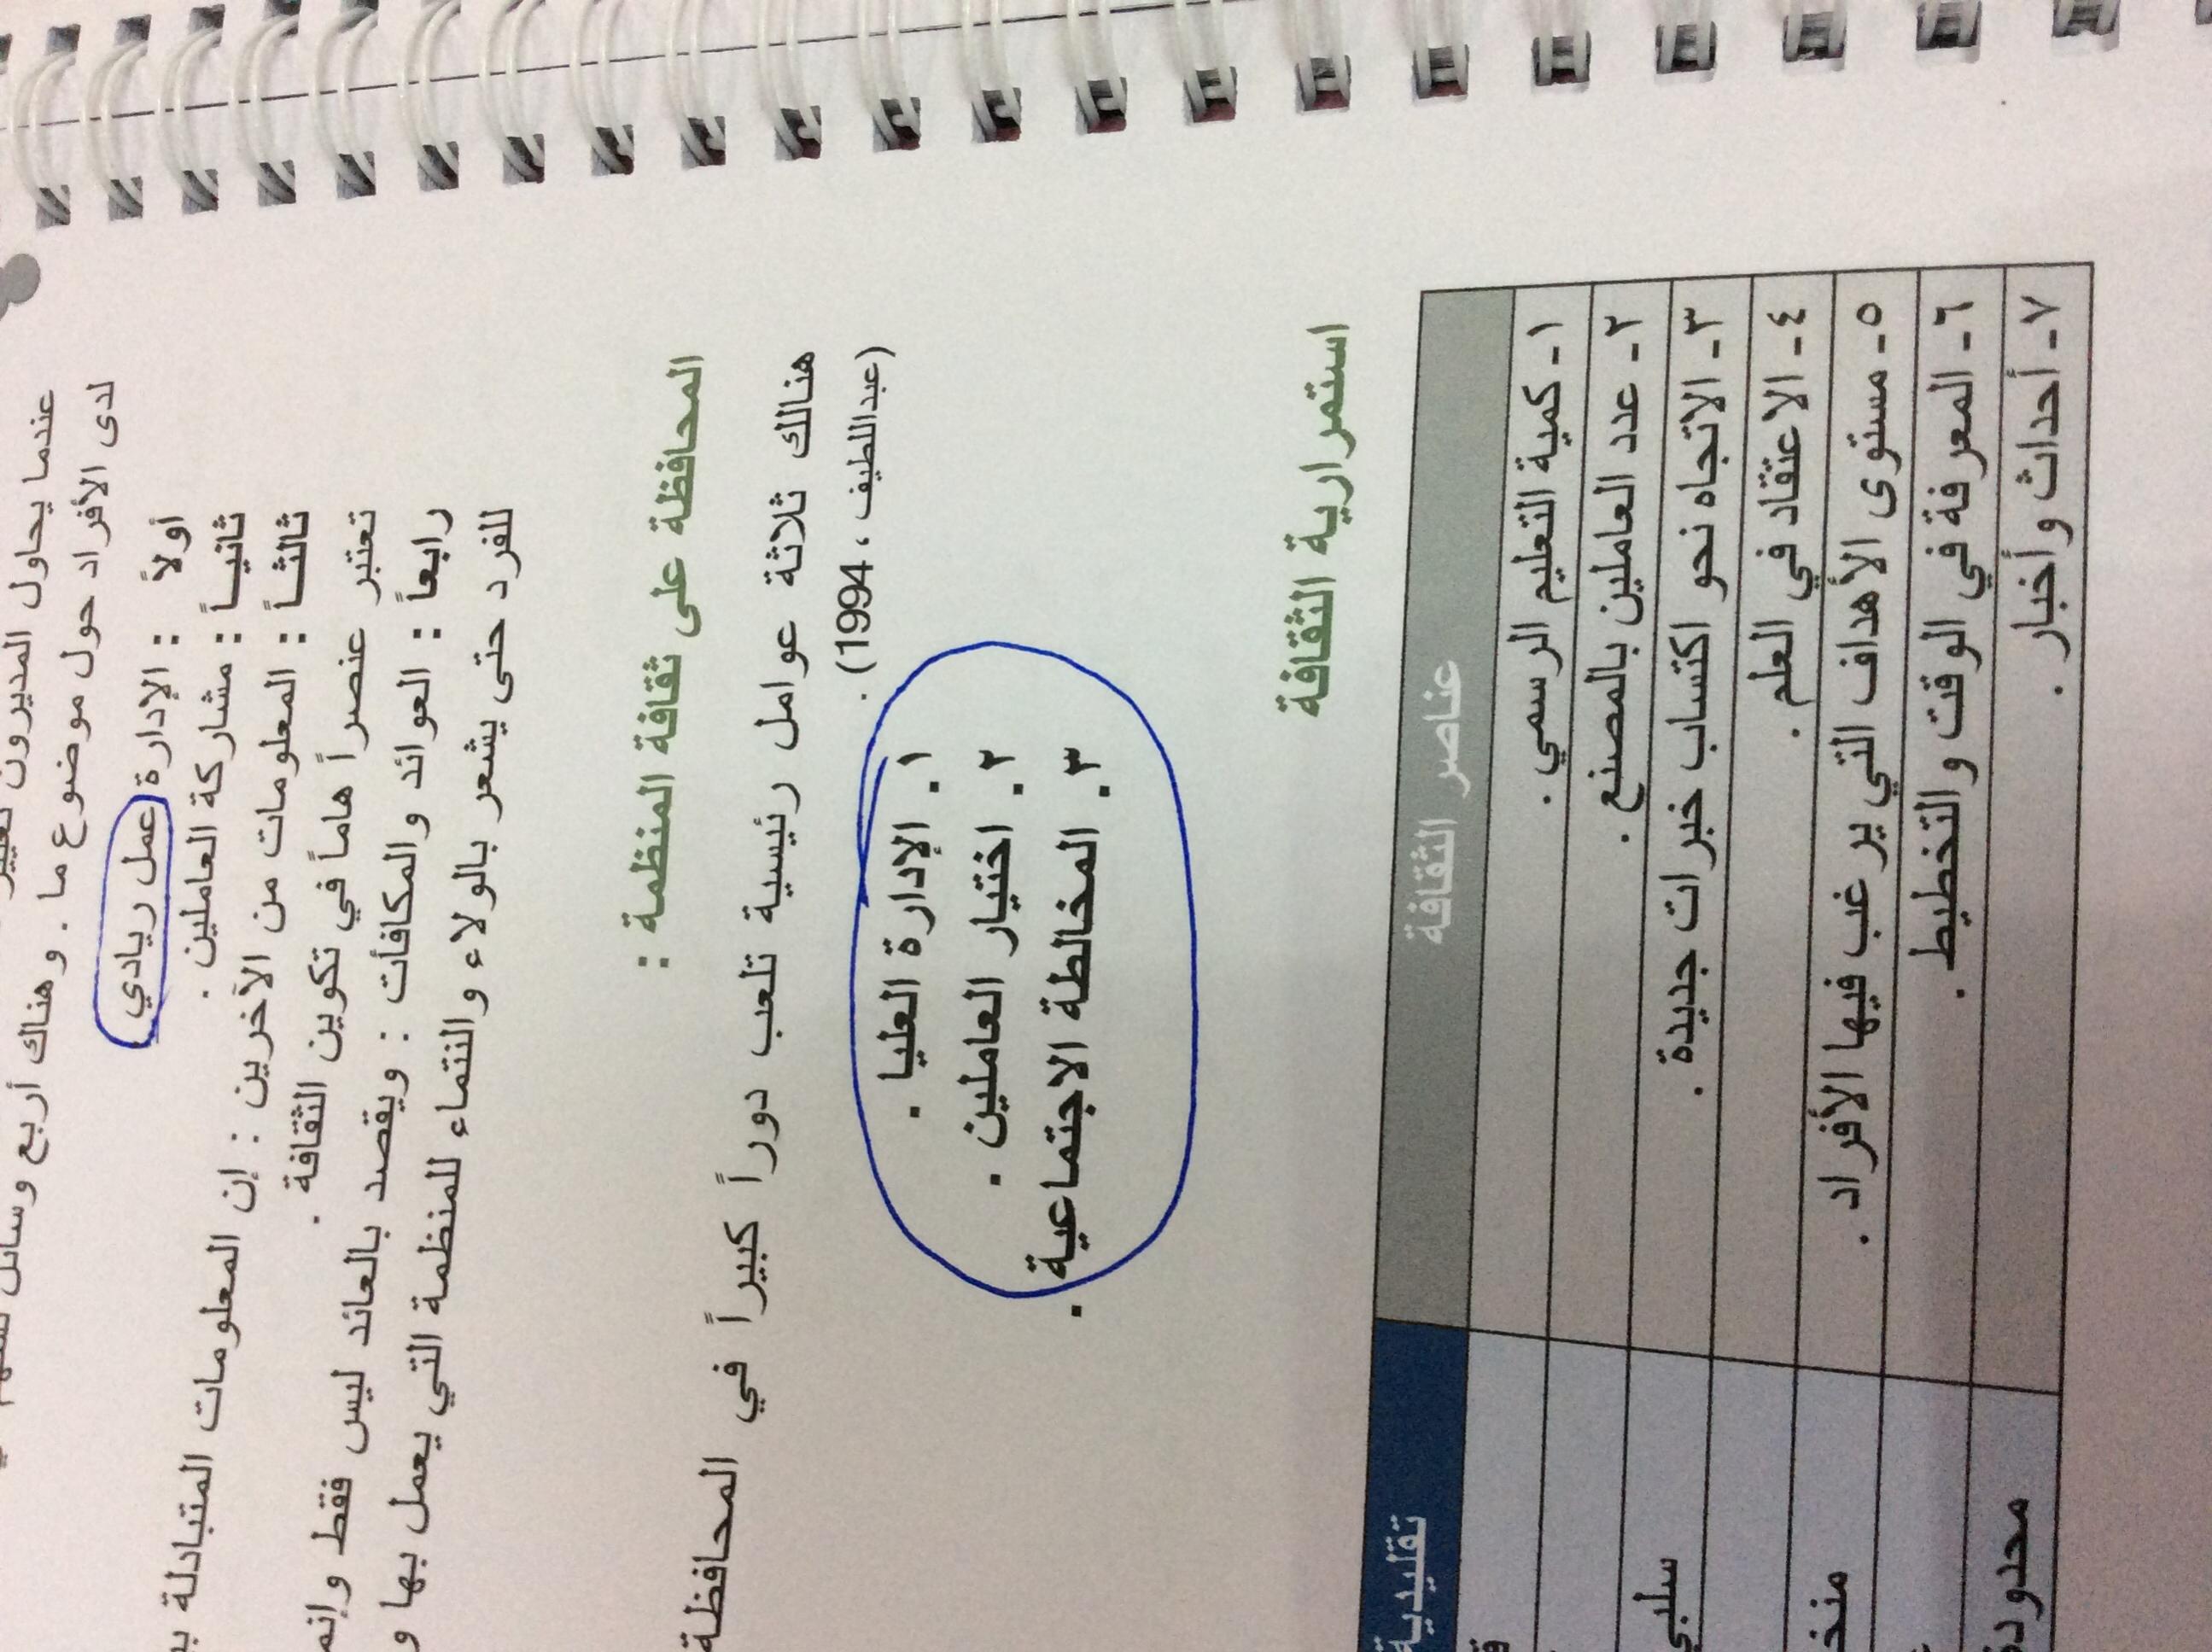 عندما يحاول المديرون تغيير
لدى الأفراد حول موضوع ما . وهناك أربع وسائل
أولاً : الإدارة عمل ريادي
ثانيـاً : مشاركة العاملين .
ثالثـاً : المعلومات من الآخرين : إن المعلومات المتبادلة
تعتبر عنصراً هاماً في تكوين الثقافة .
رابعاً : العوائد والمكافأت : ويقصد بالعائد ليس فقط وإنم
للفرد حتى يشعر بالولاء والنتماء للمنظمة التي يعمل بها و
المحافظة على ثقافة المنظمة :
هنالك ثلاثة عوامل رئيسية تلعب دوراً كبيراً في المحافظة
(عبداللطيف ، 1994) .
١. الإدارة العليا .
٢. اختيار العاملين .
٣. المخالطة الاجتماعية .
استمرارية الثقافة
عناصر الثقافة تقليدية
١- كمية التعليم الرسمي .
٢- عدد العاملين بالمصنع .
٣- الاتجاه نحو اكتساب خبرات جديدة . سلبي
٤- الاعتقاد في العلم .
٥- مستوى الأهداف التي يرغب فيها الأفراد . منخ
٦- المعرفة في الوقت والتخطيط .
٧- أحداث وأخبار . محدودة